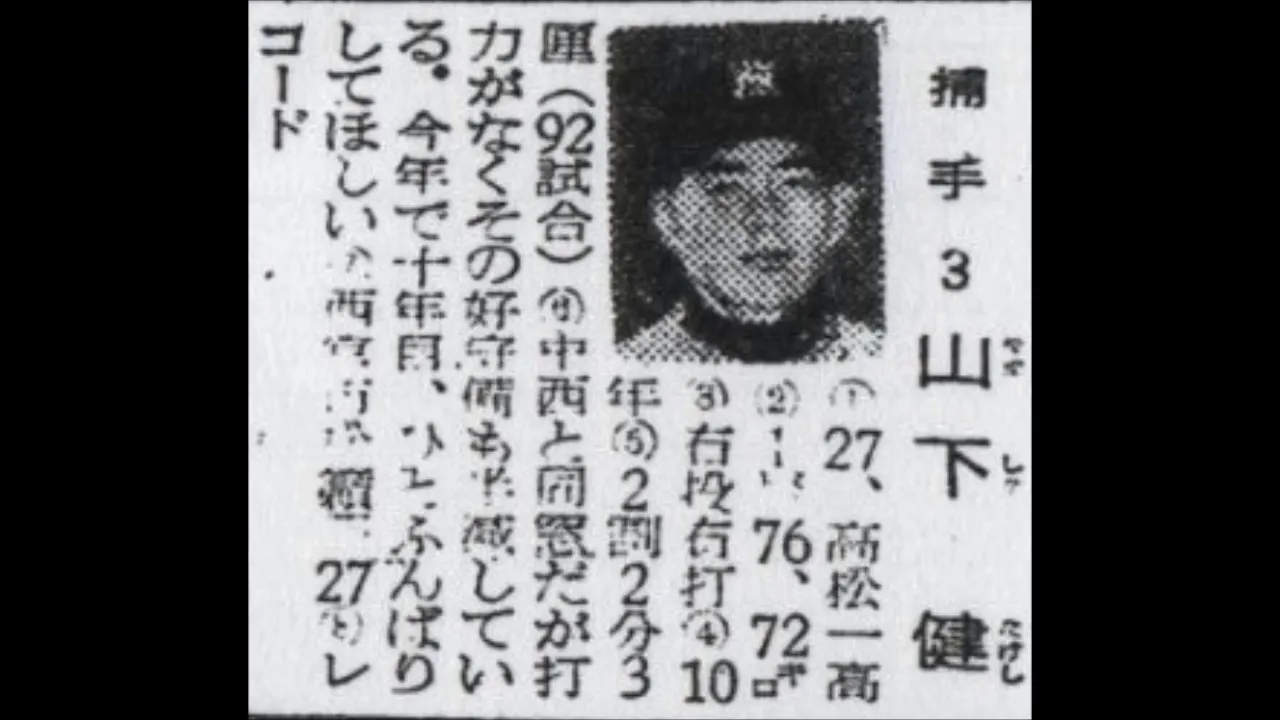 捕手3山下健
やま した たけし
① 27、高松一高
② 76、72キロ
③ 右投右打④10
年⑤2割2分3
厘(92試合)⑥中西と同窓だが打
力がなくその好守備も半減してい
る。今年で十年目、ひとふんばり
してほしい 西宮市 27 レ
コード